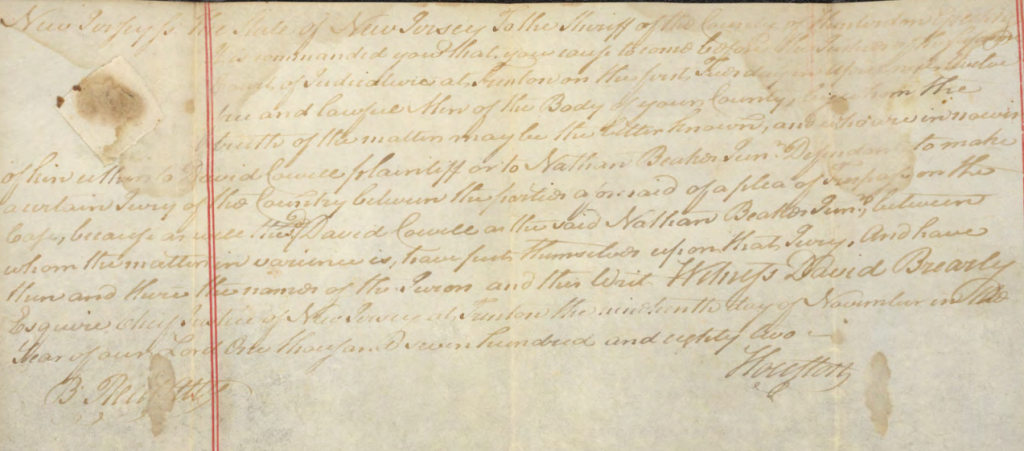 New Jersey ss the State of New Jersey To the Sheriff of the County of Hunterdon
is commanded you that you cause to come before the Justices of the
Court of Judicature at Trenton on the first Tuesday in twelve
free and lawful Men of the Body of your County, by whom the
truth of the matter may be the better known, and who are in nowise
of kin either to David Cowell plaintiff or to Nathan Beakes Junr. Defendant to make
a certain Jury of the Country between the parties aforesaid of a plea of Trespass on the
Case, because as well the sd David Cowell as the said Nathan Beakes Junr. between
whom the matter in varience is, have put themselves upon that Jury, And have
then and there the names of the Jurors and this Writ Witness David Brearly
Esquire Chief Justice of New Jersey at Trenton the day of November in the
Year of our Lord One thousand seven hundred and eighty two
Houston